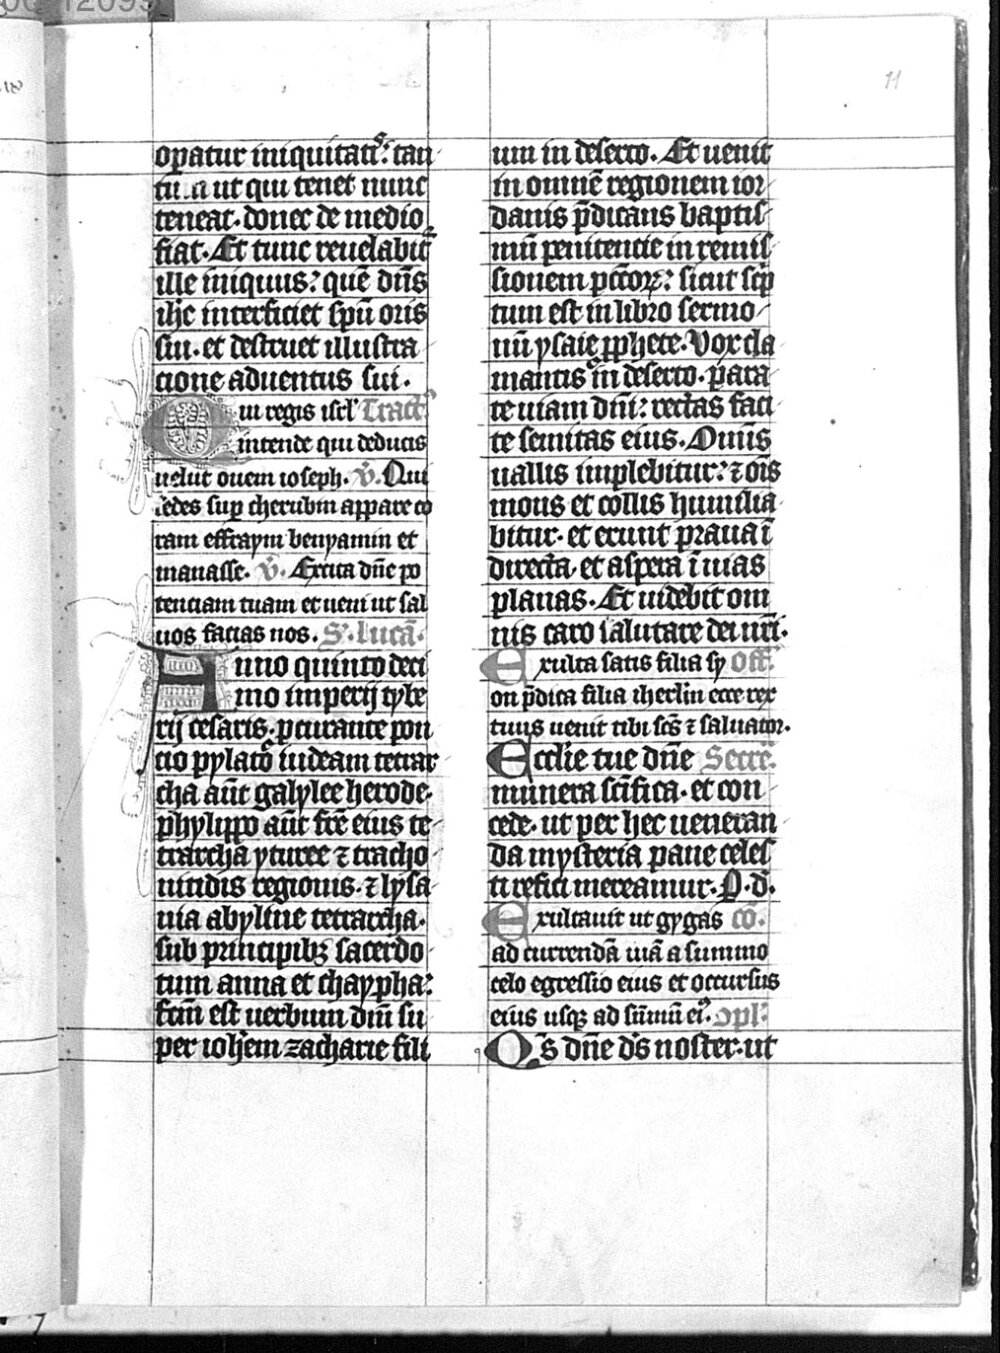 11
opatur iniquitatis: tan
tum ut qui tenet nunc
teneat. donec de medio
fiat. Et tunc reuelabit᷑
ille iniquus: quē dn̄s
ih̄c interficiet spū oris
sui. et destruet illustra
cione aduentus sui.
Qui regis isrl' Tract᷒
intende qui deducis
uelut ouem ioseph. v̄. Qui
sedes sup cherubin appare co
ram effraym benyamin et
manasse. v̄. Excita dn̄e po
tenciam tuam et ueni ut sal
uos facias nos. S'. lucā.
Anno quinto deci
mo imperij tybe
rij cesaris. ꝓcurante pon
cio pylato iudeam tetrar
cha aūt galylee herode.
phylippo aūt fr̄e eius te
trarcha yturee ⁊ tracho
nitidis regionis. ⁊ lysa
nia abyline tetrarcha.
sub principibꝫ sacerdo
tum anna et chaypha:
fc̄m est uerbum dn̄i su
per ioh̄em zacharie fili
um in deserto. Et uenit
in omnē regionem ior
danis p̄dicans baptis
mū penitencie in remis
sionem pc̄cōꝝ: sicut sc̄p
tum est in libro sermo
nū ysaie ꝓphete. Vox cla
mantis in deserto. parа
te uiam dn̄i: rectas faci
te semitas eius. Omnis
uallis implebitur: ⁊ oīs
mons et collis humilia
bitur. et erunt praua ī
directa. et aspera ī uias
planas. Et uidebit om
nis caro salutare dei nr̄i.
Exulta satis filia sy Off̄.
on p̄dica filia iherl̄m ecce rex
tuus uenit tibi sc̄s ⁊ saluator.
Eccl̄ie tue dn̄e Secrē.
munera sc̄ifica. et con
cede. ut per hec ueneran
da mysteria pane celes
ti refici mereamur. P. d̄.
Exultauit ut gygas cō.
ad currendā uiā a summo
celo egressio eius et occursus
eius usqꝫ ad sūmū ei᷒. Ↄpl̄.
Qs̄ dn̄e ds̄ noster. ut